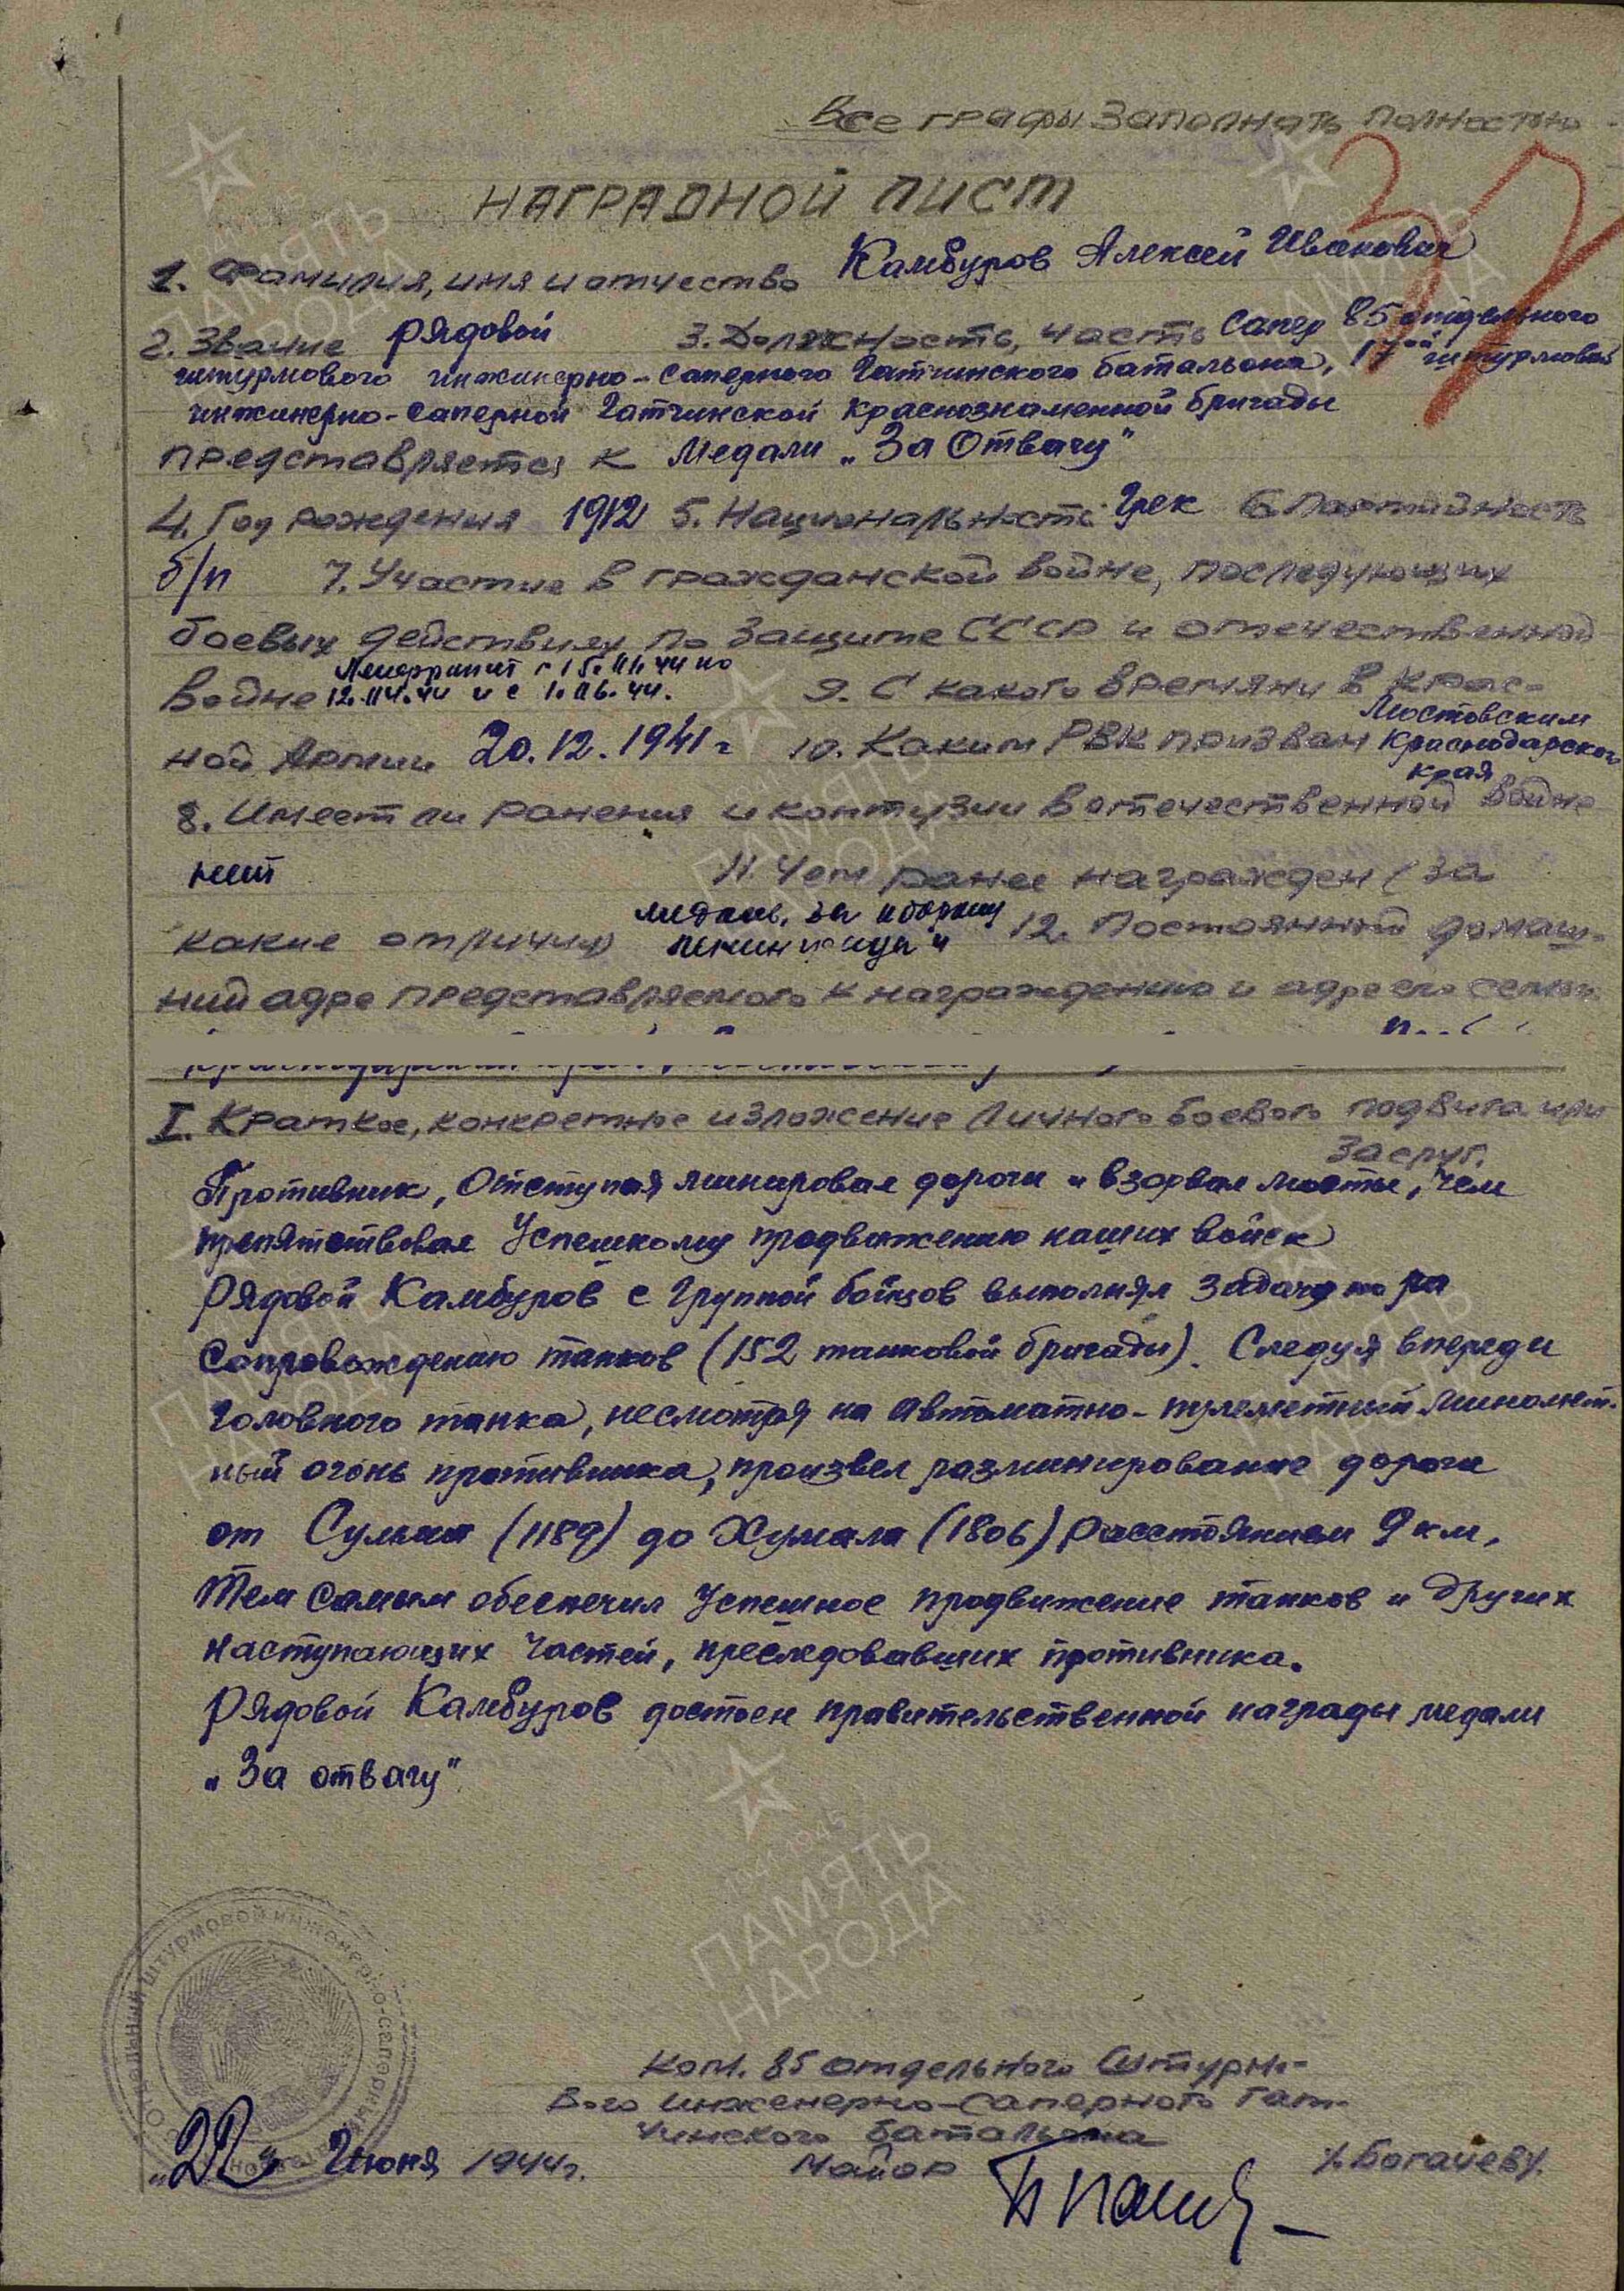 Все графы заполнять полностью
37
НАГРАДНОЙ ЛИСТ
1. Фамилия, имя и отчество Камбуров Алексей Иванович
2. Звание рядовой 3. Должность, часть сапер 85 отдельного
штурмового инжинерно-саперного Гатчинского батальона, 17ой штурмовой
инжинерно-саперной Гатчинской краснознаменной бригады
представляется к Медали „За Отвагу"
4. Год рождения 1912 5. Национальность Грек 6. Партийность
б/п 7. Участие в гражданской войне, последующих
боевых действиях по защите СССР и отечественной
войне Ленфронт с 15. 01. 44 по
12. 04. 44 и с 1. 06. 44. 9. С какого времяни в Крас-
ной Армии 20.12.1941г 10. Каким РВК призван Мостовским
Краснодарского
края
8. Имеет ли ранения и контузии в отечественной войне
нет 11. Чем ранее награжден (за
какие отличия медаль, за оборону
Ленинграда" 12. Постоянный домаш-
ний адре представляемого к награждению и адрес его семьи
I. Краткое, конкретное изложение личного боевого подвига или
заслуг.
Противник, Отступая минировал дороги и взорвал мосты, чем
препятствовал Успешному продвижению наших войск
Рядовой Камбуров с Группой бойцов выполнял задачу по
Сопровождению танков (152 танковой бригады). Следуя впереди
Головного танка, несмотря на Автоматно-пулеметный миномет-
ный огонь противника, произвел разминирование дороги
от Сулкиа (1189) до Хумала (1806) Расстоянием 9 км,
Тем самым обеспечил Успешное продвижение танков и других
Наступающих Частей, преследовавших противника.
Рядовой Камбуров достоен правительственной награды медали
„За отвагу"
Отдельный штурмовой инженерно-саперный
Ком. 85 отдельного Штурмо-
вого инженерно-саперного Гат-
чинского батальона
„22" Июня 1944г. Майор /Богачев/.
ПАМЯТЬ
НАРОДА